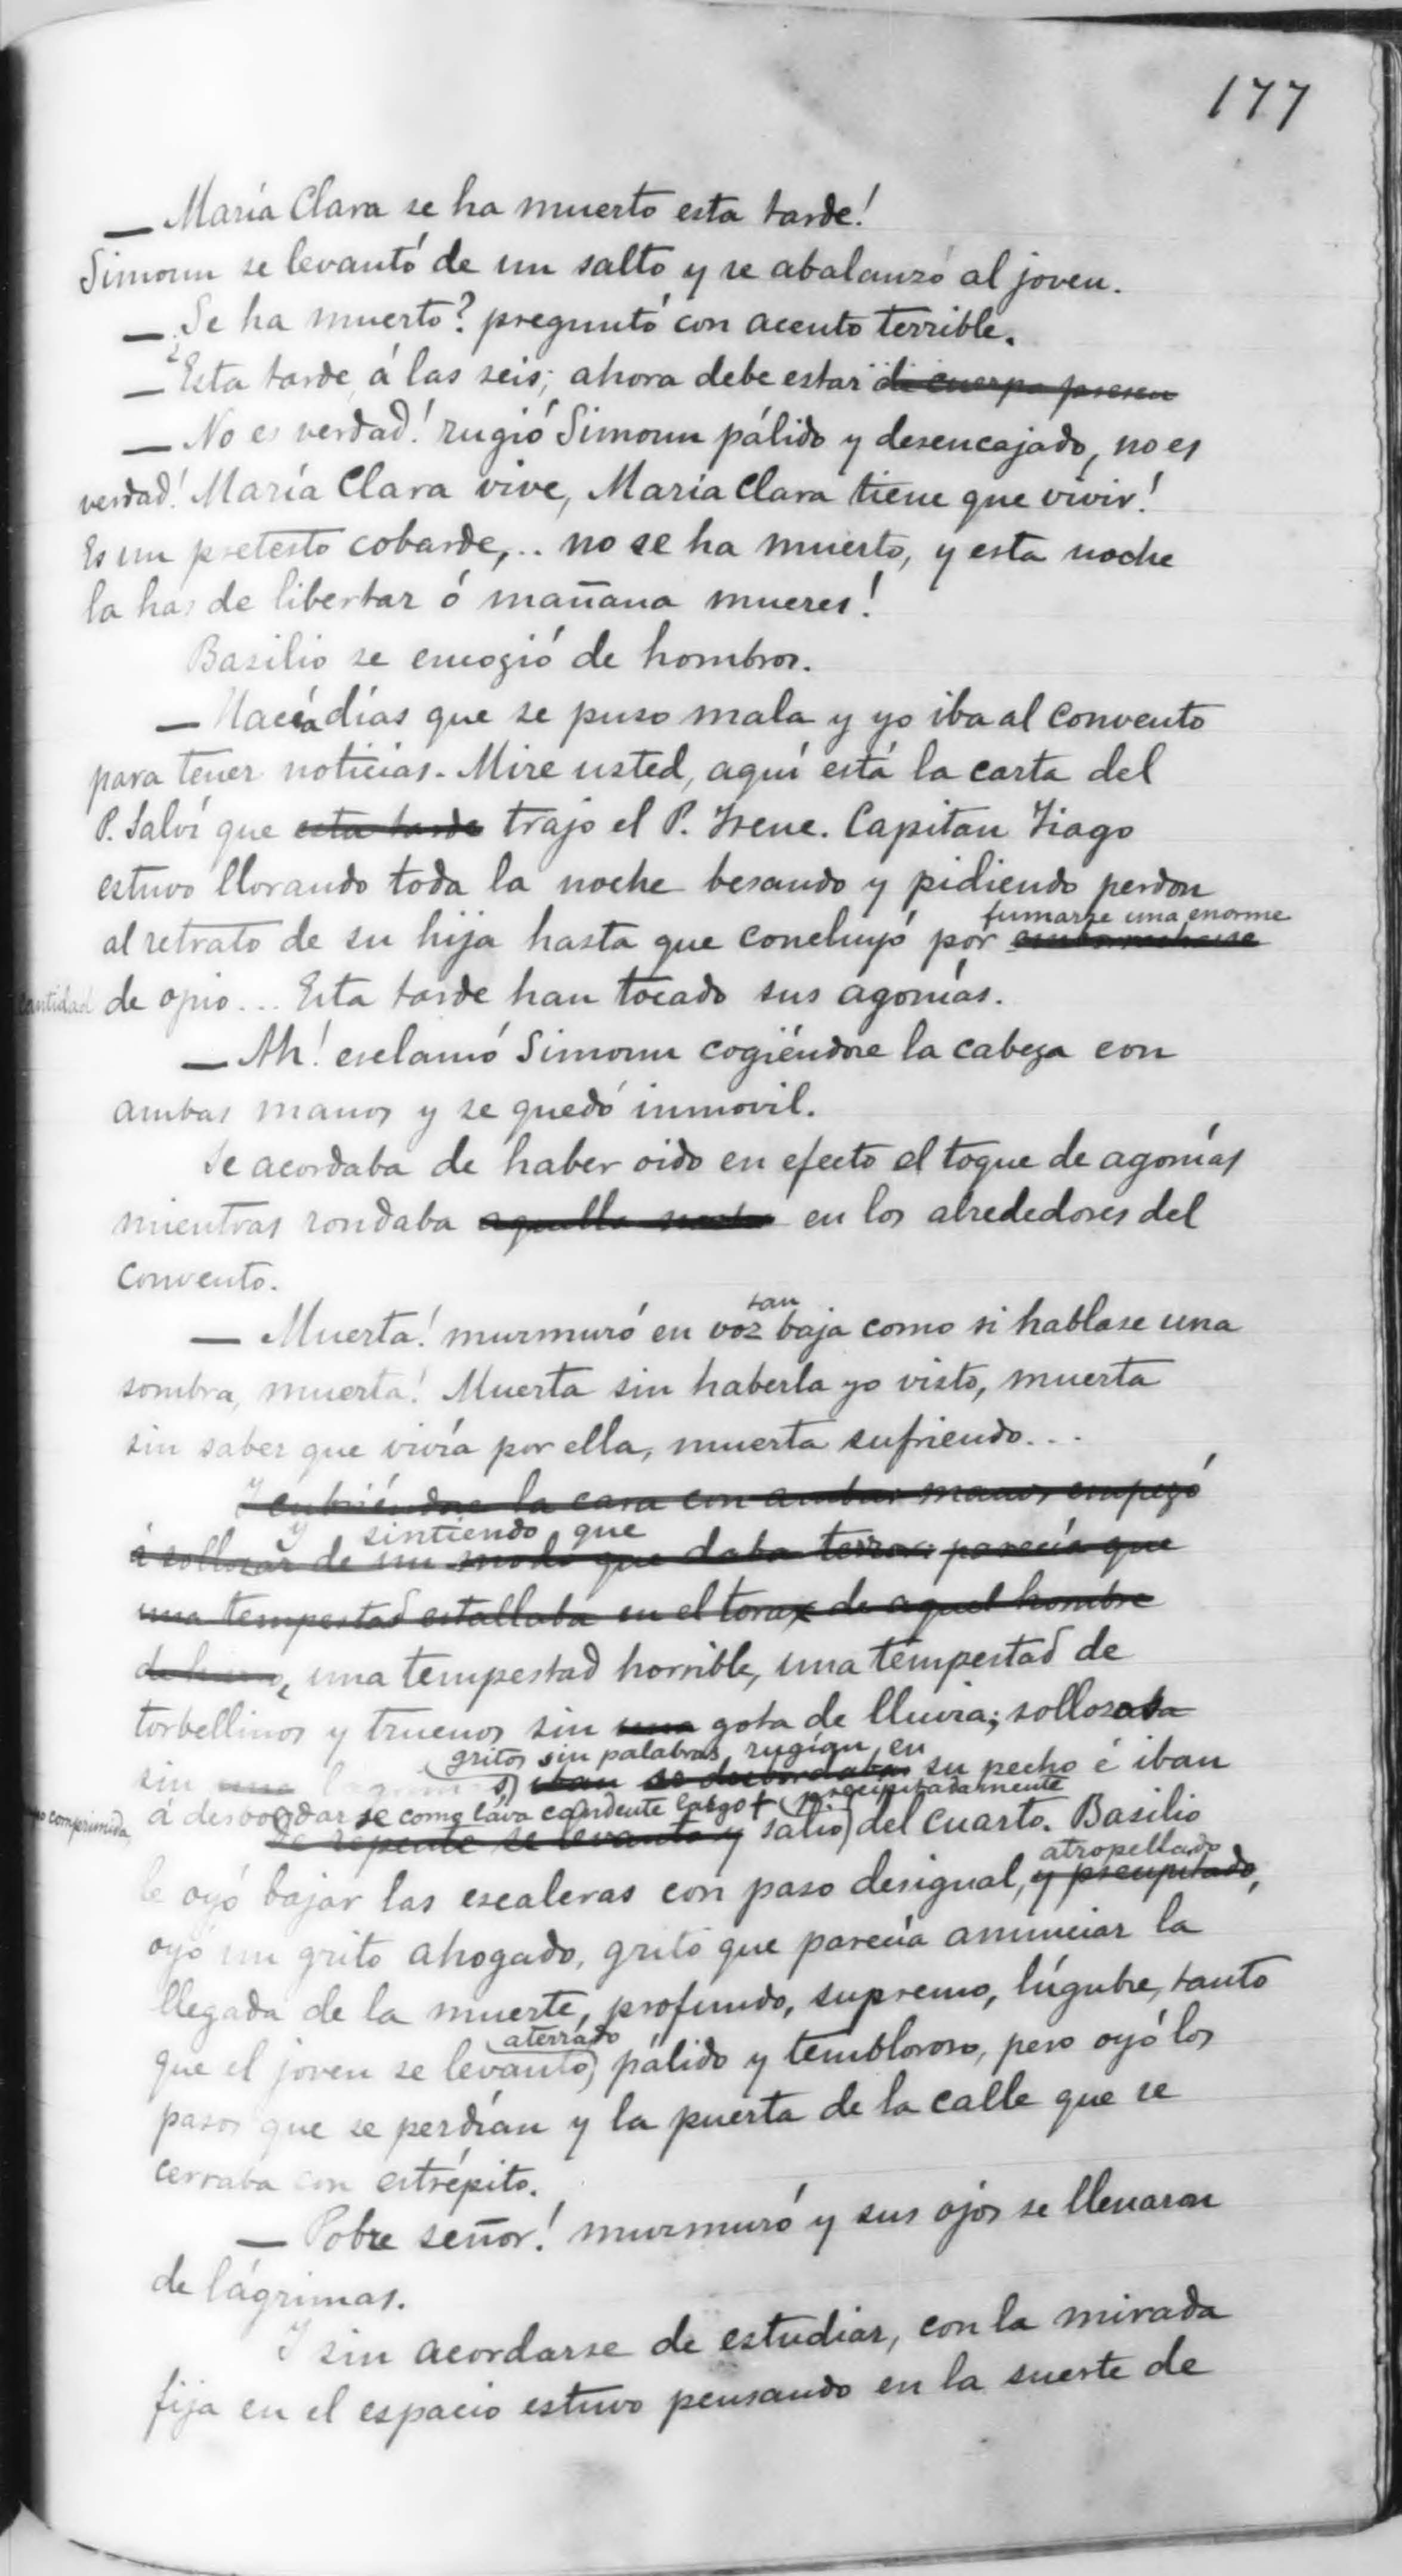 177
— María Clara se ha muerto esta tarde!
Simoun se levantó de un salto y se abalanzó al joven.
— ¿Se ha muerto? preguntó con acento terrible.
— Esta tarde, á las seis; ahora debe estar de cuerpo presen
— No es verdad! rugió Simoun pálido y desencajado, no es
verdad! María Clara vive, María Clara tiene que vivir!
Es un pretesto cobarde,.. no se ha muerto, y esta noche
la has de libertar ó mañana mueres!
Basilio se encogió de hombros.
— Hacía días que se puso mala y yo iba al convento
para tener noticias. Mire usted, aquí está la carta del
P. Salví que esta tarde trajo el P. Irene. Capitan Tiago
estuvo llorando toda la noche besando y pidiendo perdon
fumarse una enorme
al retrato de su hija hasta que concluyó por emborracharse
cantidad de opio... Esta tarde han tocado sus agonías.
— Ah! esclamó Simoun cogiéndose la cabeza con
ambas manos y se quedó inmovil.
Se acordaba de haber oido en efecto el toque de agonías
mientras rondaba aquella noche en los alrededores del
convento.
tan
— Muerta! murmuró en voz baja como si hablase una
sombra, muerta! Muerta sin haberla yo visto, muerta
sin saber que vivía por ella, muerta sufriendo...
Y cubriéndose la cara con ambas manos empezó
y sintiendo que
á sollozar de un modo que daba terror: parecía que
una tempestad estallaba en el torax de aquel hombre
de hierro, una tempestad horrible, una tempestad de
torbellinos y truenos sin una gota de lluvia; sollozaba
gritos sin palabras, rugían en
sin una iban se desbordaban su pecho é iban
precipitadamente
comprimida, á desbordarse como lava candente largo
de repente se levantó y salió del cuarto. Basilio
atropellado
le oyó bajar las escaleras con paso desigual, y precipitado,
oyó un grito ahogado, grito que parecía anunciar la
llegada de la muerte, profundo, supremo, lúgubre, tanto
aterrado
que el joven se levantó pálido y tembloroso, pero oyó los
pasos que se perdían y la puerta de la calle que se
cerraba con estrépito.
— Pobre señor! murmuró y sus ojos se llenaron
de lágrimas.
Y sin acordarse de estudiar, con la mirada
fija en el espacio estuvo pensando en la suerte de